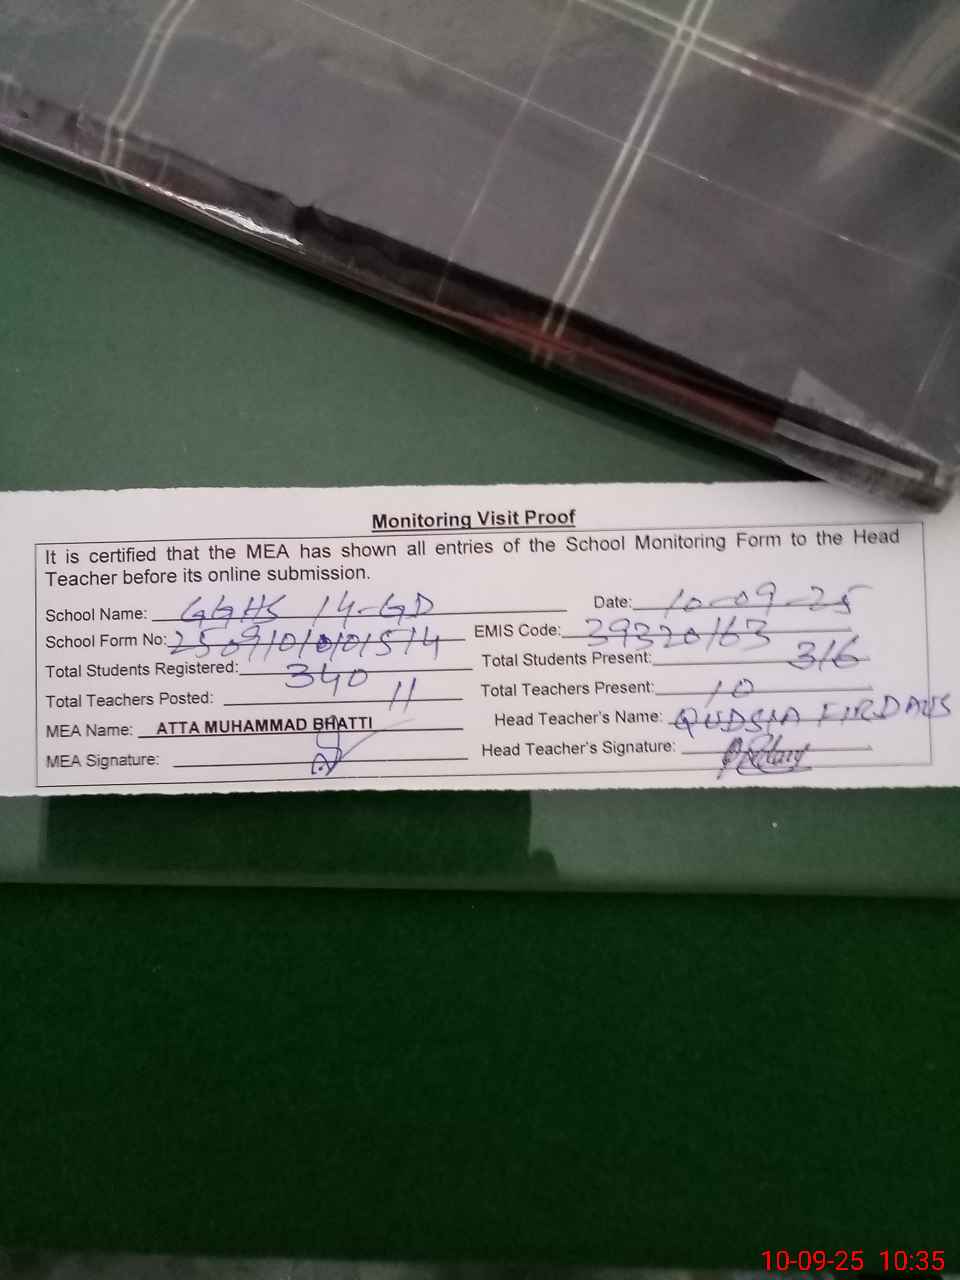 Monitoring Visit Proof
It is certified that the MEA has shown all entries of the School Monitoring Form to the Head
Teacher before its online submission.
School Name: GGHS 14-GD Date: 10-09-25
School Form No: EMIS Code: 39320163
Total Students Registered: 340 Total Students Present: 316
Total Teachers Posted: 11 Total Teachers Present: 10
MEA Name: ATTA MUHAMMAD BHATTI Head Teacher's Name: QUDSIA FIRDAUS
MEA Signature: Head Teacher's Signature:
10-09-25 10:35